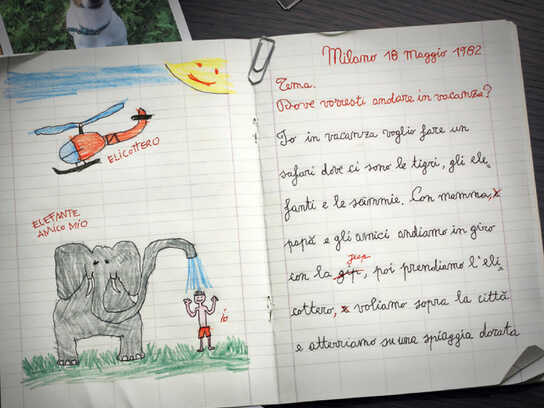 ELICOTTERO
ELEFANTE
AMICO MIO
io
Milano 18 Maggio 1982
Tema.
Dove vorresti andare in vacanza?
Io in vacanza voglio fare un
safari dove ci sono le tigri, gli ele
fanti e le scimmie. Con mamma, x
papà e gli amici andiamo in giro
jeep
con la gip, poi prendiamo l'eli
cottero, x voliamo sopra la città
e atterriamo su una spiaggia dorata